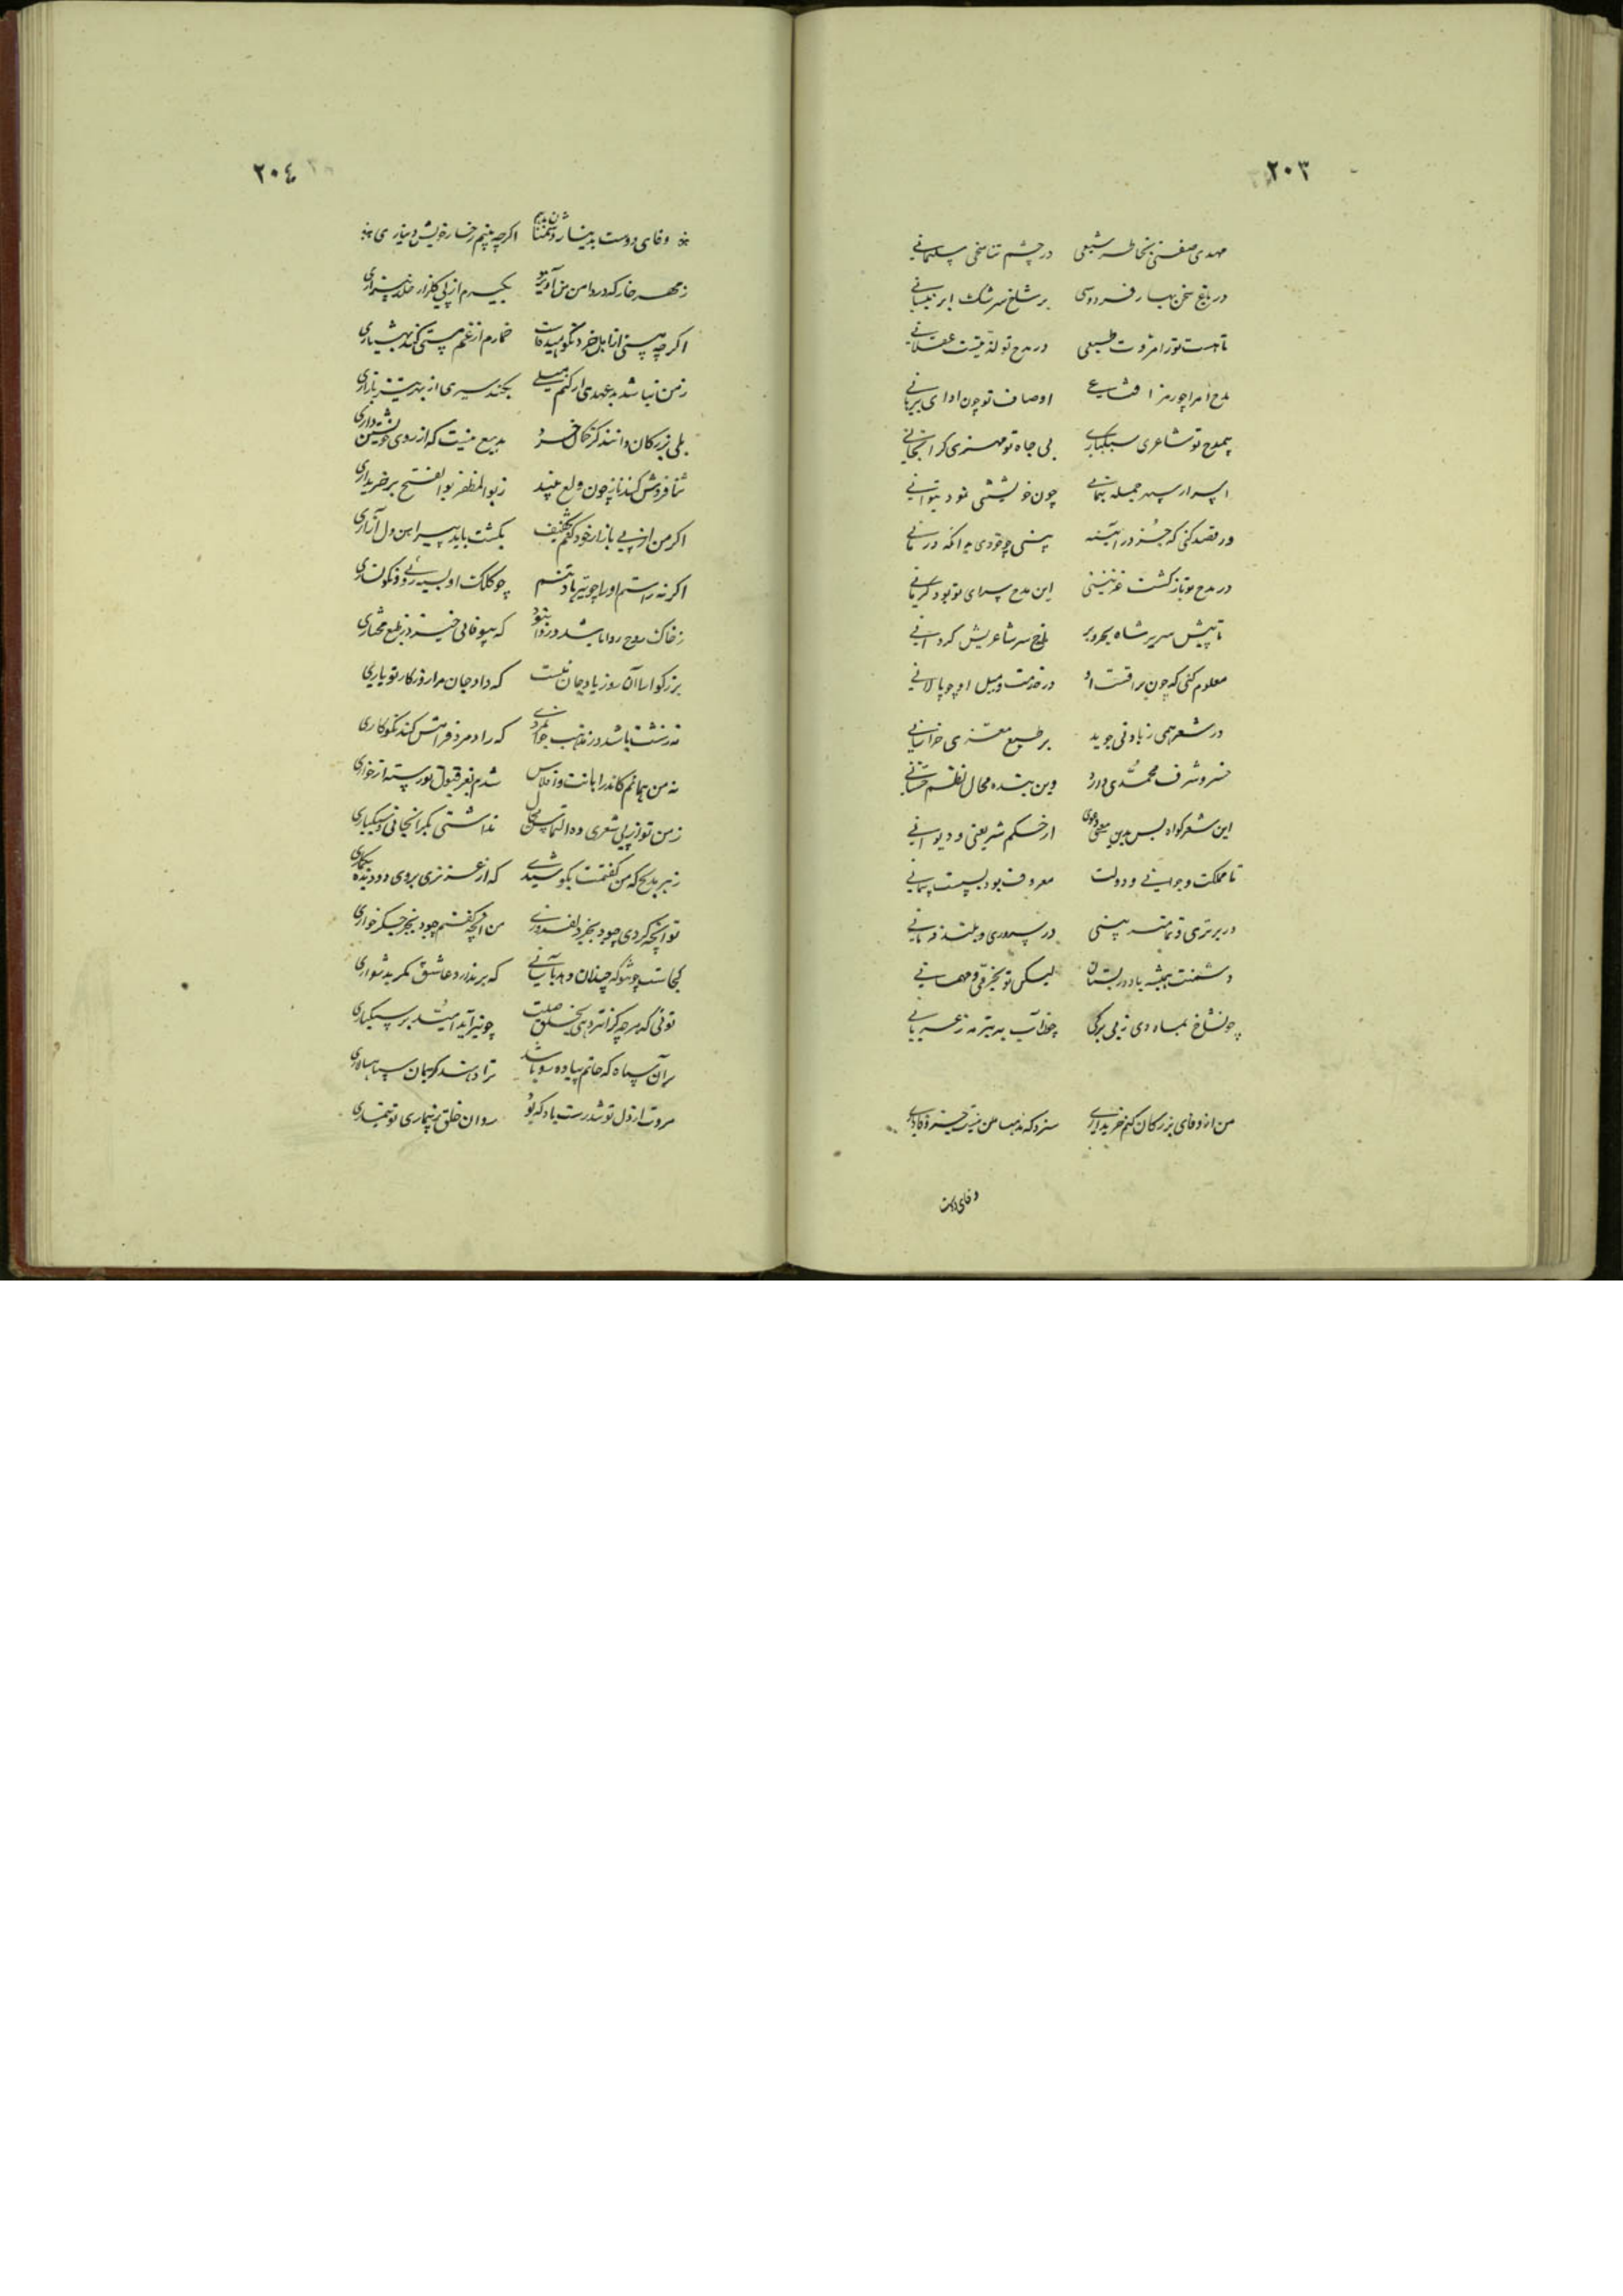 ٢٠٣
مهدی صفتی بخاطر شیعی در چشم تناسخی سلیمانی
در باغ سخن بهار فردوسی بر شاخ سرشک ابر نیسانی
تا هست تو را مروت طبیعی در مدح تو لذتیست عقلانی
مدح امرا چو رمز اوصاف تو چون ادای برهانی
بیمدح تو شاعری سبکباری بی جاه تو مهتری گرانجانی
اسرار سپهر جمله بتمائی چون خویشتنی نمود نتوانی
ور قصد کنی که جز در آیینه بینی چو خودی بدانکه درمانی
در مدح تو باز گشت غزنینی این مدح سرای تو بود کرمانی
تا پیش سریر شاه بحر و بر بلخ سر شاعریش گردانی
معلوم کنی که چون براقست او در خدمت و میل او چو پالانی
در شعر همی زیادتی جوید بر طبع معزی خراسانی
خسرو شرف محمدی دارد وین بنده محال نظم حسانی
این شعر گواه بس بدین معنی دعوی از حکم شریعتی و دیوانی
تا مملکت و جوانی و دولت معروف بود بسست پیمانی
در برتری و تمتع بینی در سروری و بلند فرمانی
دشمنت همیشه باد در بستان لیکن تو بخرمی و مهمانی
چون شاخ بماه دی ز بی برگی چون آب به تیر مه ز عریانی
من از وفای بزرگان کنم خریداری سزد که مذهب من نیست جز وفاداری
وفای دوست
٢٠٤
وفای دوست بدینار دشمنان ندهم اگرچه بینم رخسار خویش دیناری
ز مهر خار که در دامن من آویزد بگیرم از پی گلزار خلد بیزاری
اگرچه مستی از اهل خرد نکوهیده است خمارم از غم مستی کند بهشیاری
ز من نباشد بدعهدی ار کنم میلی بکند سیری از بهر تیز بازاری
بلی بزرگان دانند کز کمال خرد بدیع نیست که از روی خویشتن داری
ثنا فروش کند ناز چون ولع بیند ز بوالمظفر بوالفتح بر خریداری
اگر من از پی بازار خود کنم تخفیف بکشت باید پیراهن دل آزاری
اگر نه راستم او را چو تیر باد تنم چو کلک او بسیه روئی و نگونساری
ز خاک روح روا باشد در روا نبود که بیوفائی خیزد ز طبع مختاری
بزرگوارا آن روز یاد جان نیست که داد جان مرا روزگار تو یاری
نه زشت باشد در مذهب جوانمردی که راد مرد فرامش کند نکوکاری
نه من همانم کاندر اهانت و افلاس شدم بفر قبول تو رسته از خواری
ز من تو از پی شعری دو التماس مکن نداشتی بگرانجانی و سبکباری
ز هر مدیح که من گفتمت بکوشیدی که از عزیزی بروی دو دیده بنگاری
تو آنچه کردی چبود بجز دلفروزی من آنچه گفتم چبود بجز جگرخواری
کجاست جود تو که چندان دهد بآسانی که بر ندارد عاشق مگر بدشواری
توئی که هرچه گرانتر دهی بخلق صلت چونیز آید امید بر سبکباری
بر آن سپاه که حاتم پیاده رو باشد ترا دهند کریمان سپاهسالاری
مروت از دل تو تندرست باد که بود روان خلق ز بیماری تو تیماری